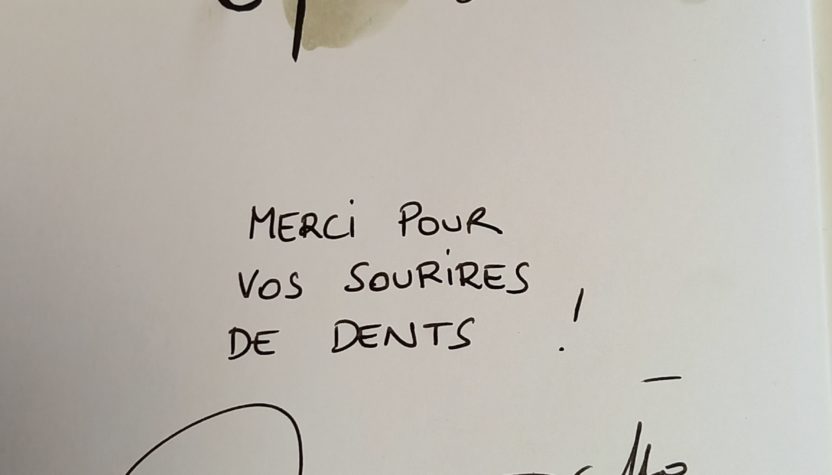 MERCi POUR
VOS SOURiRES
DE DENTS !